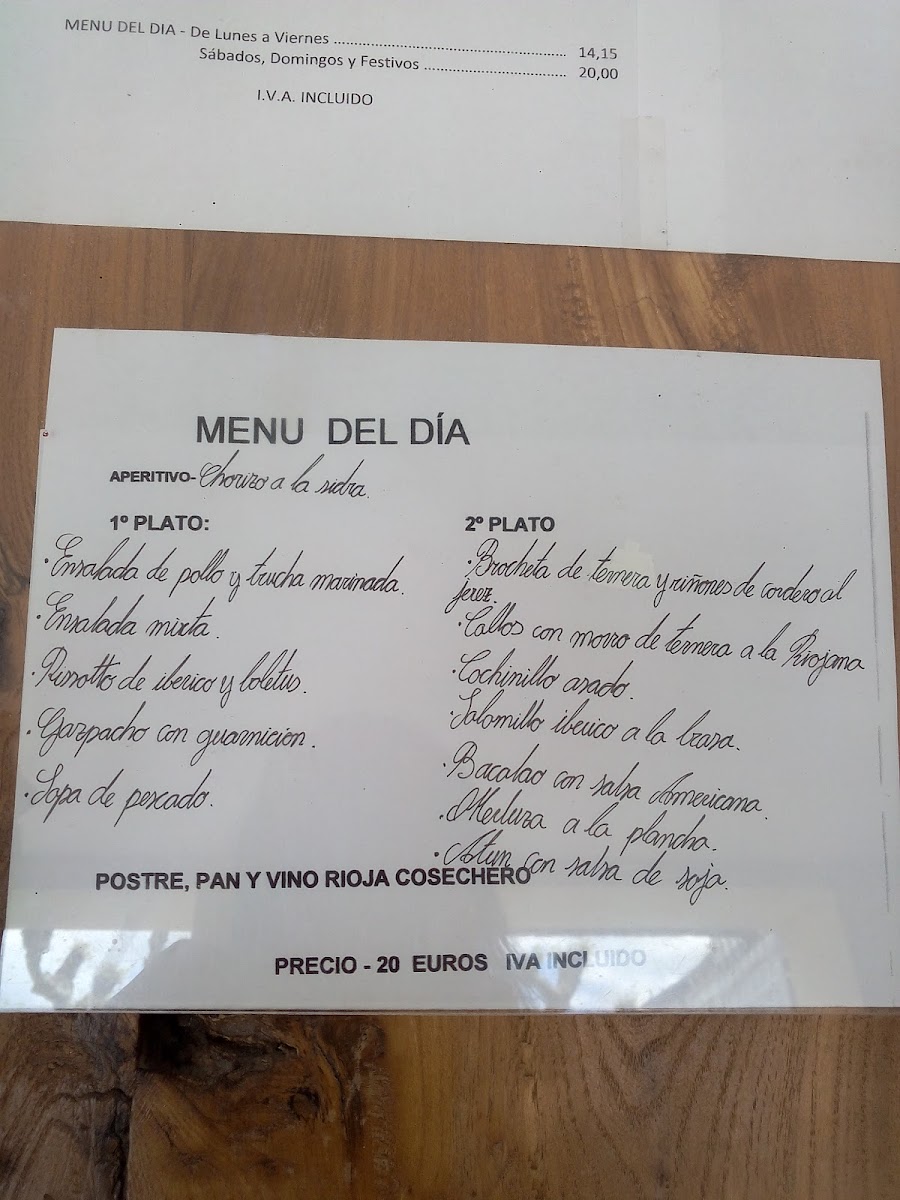 MENU DEL DIA - De Lunes a Viernes ........................................................ 14,15
Sábados, Domingos y Festivos ................................... 20,00
I.V.A. INCLUIDO
MENU DEL DÍA
APERITIVO- Chorizo a la sidra.
1º PLATO:
· Ensalada de pollo y trucha marinada.
· Ensalada mixta.
· Rissotto de iberico y boletus.
· Gazpacho con guarnicion.
· Sopa de pescado.
2º PLATO
· Brocheta de ternera y riñones de cordero al
jerez.
· Callos con morro de ternera a la Riojana
· Cochinillo asado.
· Solomillo iberico a la brasa.
· Bacalao con salsa Americana.
· Merluza a la plancha.
· Atun con salsa de soja.
POSTRE, PAN Y VINO RIOJA COSECHERO
PRECIO - 20 EUROS IVA INCLUIDO